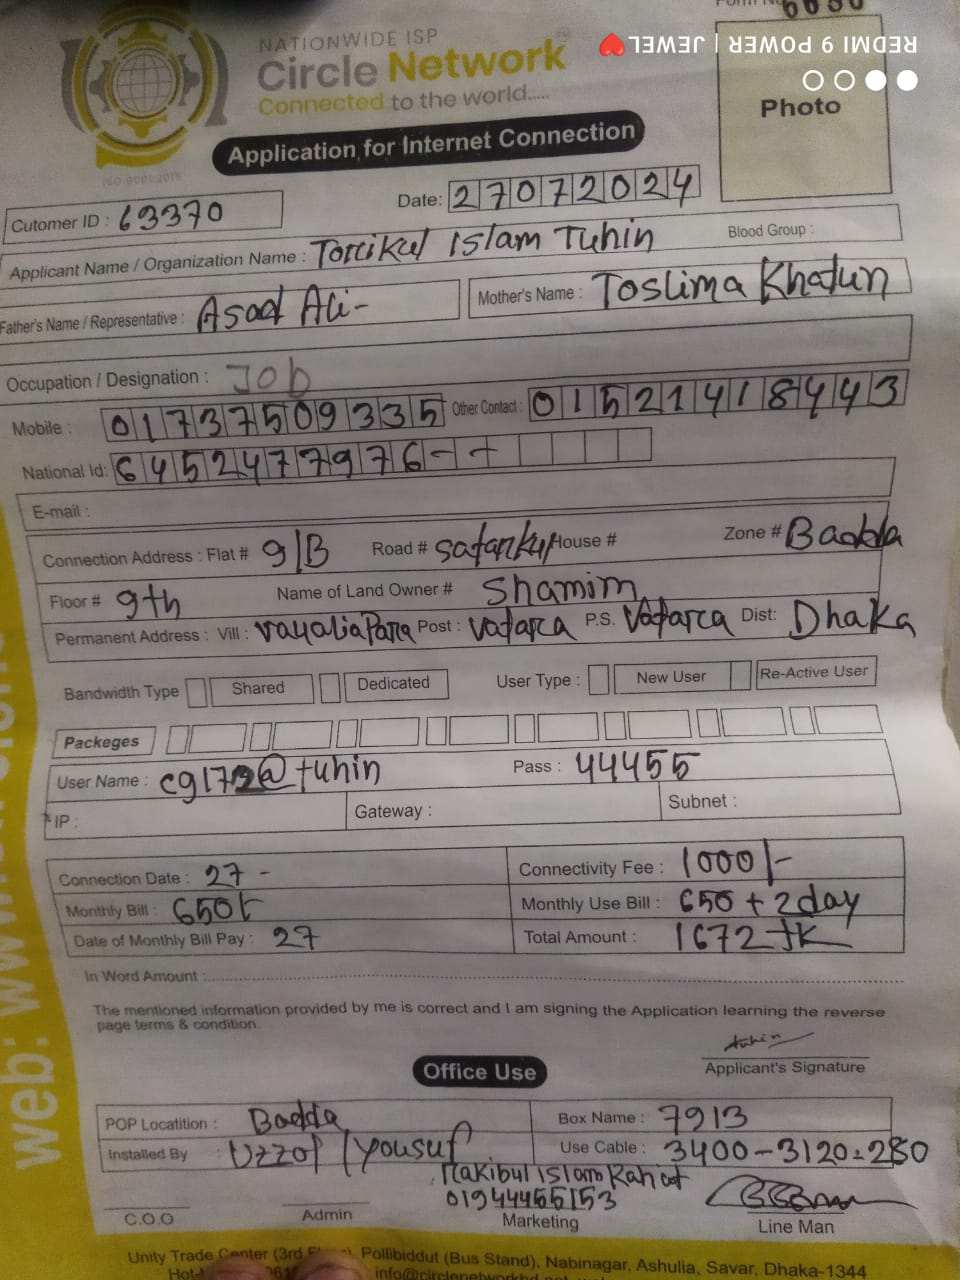 Form No
NATIONWIDE ISP
Circle Network
Connected to the world.....
REDMI 9 POWER | JEWEL
ISO 9001:2015
Application for Internet Connection
Photo
Date: 27072024
Cutomer ID : 63370
Applicant Name / Organization Name : Torikul Islam Tuhin Blood Group :
Father's Name / Representative : Asad Ali- Mother's Name : Toslima Khatun
Occupation / Designation : Job
Mobile : 01737509335 Other Contact : 01521418443
National Id: 6452477976--
E-mail :
Connection Address : Flat # 9/B Road # House # Zone # Badda
Floor # 9th Name of Land Owner # Shamim
Permanent Address : Vill : Post : P.S. Dist: Dhaka
Bandwidth Type Shared Dedicated User Type : New User Re-Active User
Packeges
User Name : @tuhin Pass : 44455
IP : Gateway : Subnet :
Connection Date : 27 - Connectivity Fee : 1000/-
Monthly Bill : 650/- Monthly Use Bill : 650 + 2day
Date of Monthly Bill Pay : 27 Total Amount : 1672 tk
In Word Amount :
The mentioned information provided by me is correct and I am signing the Application learning the reverse
page terms & condition.
tuhin
Applicant's Signature
Office Use
POP Locatition : Badda Box Name : 7913
Installed By : Uzzol / Yousuf Use Cable : 3400-3120=280
Rakibul Islam
01944465153
C.O.O Admin Marketing Line Man
Unity Trade Center (3rd Pollibiddut (Bus Stand), Nabinagar, Ashulia, Savar, Dhaka-1344
web: www.